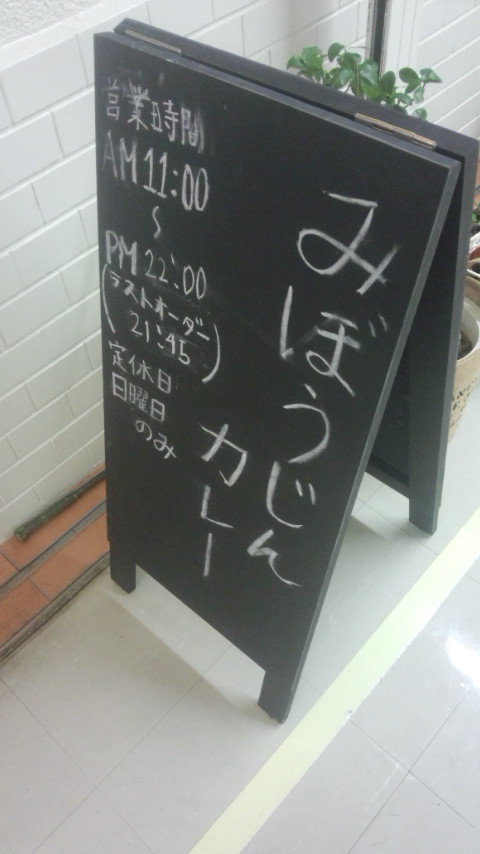 みぼうじん
カレー
営業時間
AM 11:00
〜
PM 22:00
(ラストオーダー
21:45)
定休日
日曜日
のみ